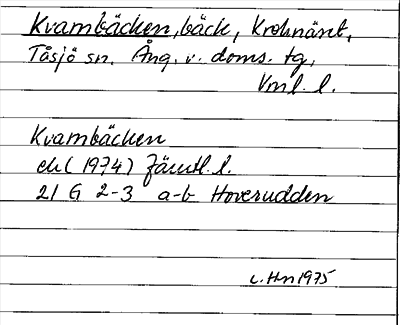 Kvambäcken, bäck, Kroknäset,
Tåsjö sn. Ång. v. doms. tg,
Vnl. l.
Kvambäcken
ek (1974) Jämtl. l.
21 G 2-3 a-b Hoverudden
1975